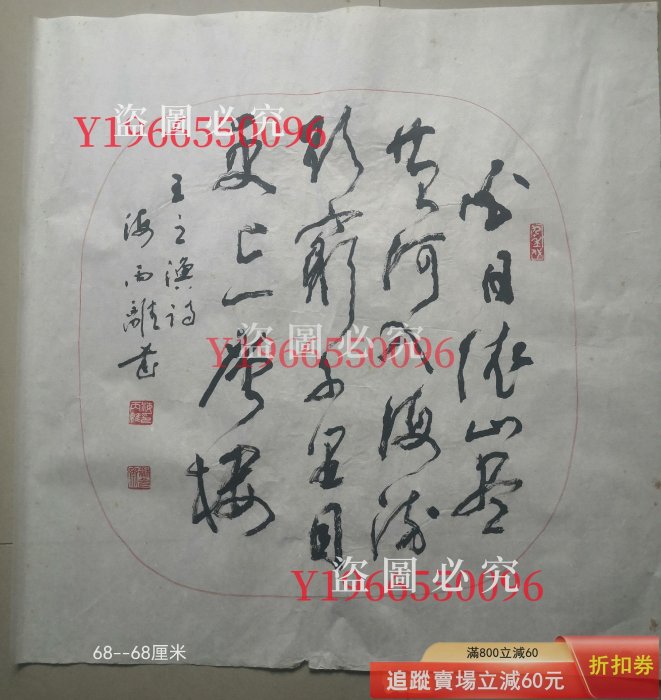 白日依山尽
黄河入海流
欲窮千里目
更上一层楼
王之渙诗
盗圖必究
Y1966550096
盗圖必究
Y1966550096
盗圖必究
Y1966550096
68--68厘米
滿800立減60
追蹤賣場立減60元
折扣券